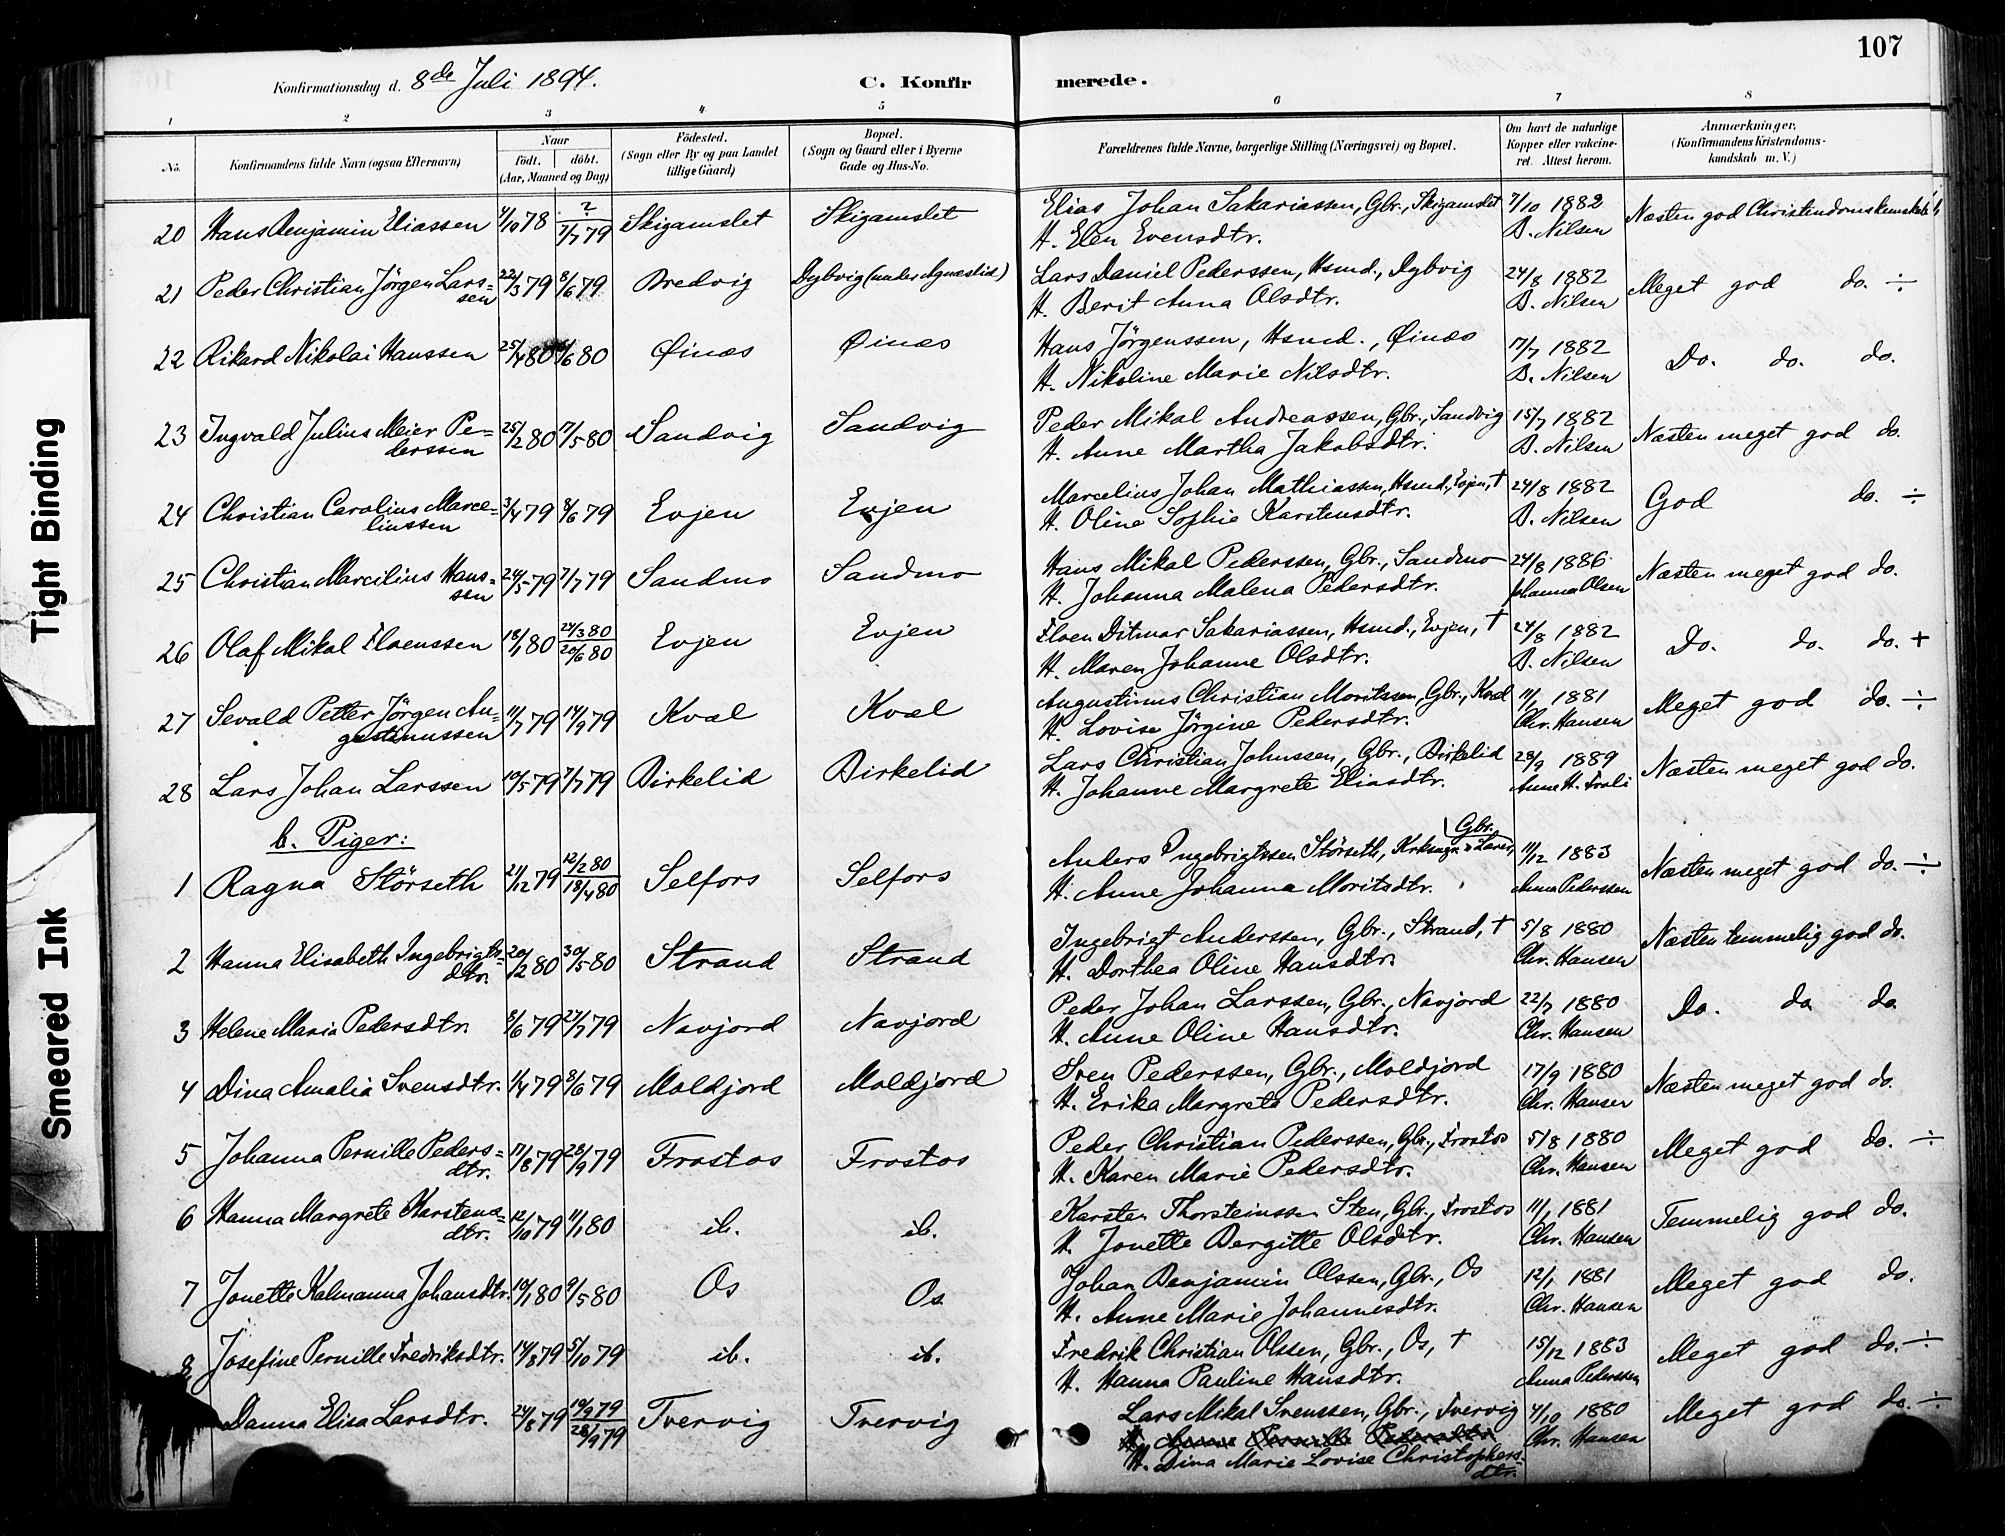 107
Konfirmationsdag d. 8de Juli 1894.
C. Konfir merede.
1 2 3 4 5 6 7 8
No.
Konfirmandens fulde Navn (ogsaa Efternavn)
Naar
födt. döbt.
(Aar, Maaned og Dag)
Födested.
(Sogn eller By og paa Landet tillige Gaard)
Bopæl.
(Sogn og Gaard eller i Byerne Gade og Hus-No.
Forældrenes fulde Navne, borgerlige Stilling (Næringsvei) og Bopæl.
Om havt de naturlige Kopper eller vaccineret. Attest herom.
Anmærkninger.
(Konfirmandens Kristendomskundskab m. V.)
20 Hans Benjamin Eliassen 4/10 78 ? 7/7 79 Skigamslet Skigamslet Elias Johan Sakariassen, Gbr., Skigamslet 7/10 1882 Næsten god Christendomskundskab
H. Elen Evensdtr. B. Nilsen
21 Peder Christian Jörgen Lars= 22/3 79 8/6 79 Bredvig Dybvig (under Agnæslid) Lars Daniel Pederssen, Hsmd., Dybvig 24/8 1882 Meget god do. ÷
sen H. Berit Anna Olsdtr. B. Nilsen
22 Rikard Nikolai Hanssen 25/4 80 /6 80 Øinæs Øinæs Hans Jörgenssen, Hsmd., Øinæs 17/7 1882 Do. do. do.
H. Nikoline Marie Nilsdtr. B. Nilsen
23 Ingvald Julius Meier Pe= 25/2 80 17/5 80 Sandvig Sandvig Peder Mikal Andreassen, Gbr., Sandvig 15/7 1882 Næsten meget god do.
derssen H. Anne Martha Jakobsdtr. B. Nilsen
24 Christian Carolius Marce= 3/4 79 8/6 79 Evjen Evjen Marcelius Johan Mathiassen, Hsmd., Evjen, † 24/8 1882 God do. ÷
liussen H. Oline Sophie Karstensdtr. B. Nilsen
25 Christian Marcilius Hans= 24/5 79 7/7 79 Sandmo Sandmo Hans Mikal Pederssen, Gbr., Sandmo 24/8 1886 Næsten meget god do.
sen H. Johanna Malena Pedersdtr. Johanna Olsen
26 Olaf Mikal Floenssen 18/1 80 24/3 80 20/6 80 Evjen Evjen Floen Ditmar Sakariassen, Hsmd., Evjen, † 24/8 1882 Do. do. do. +
H. Maren Johanne Olsdtr. B. Nilsen
27 Sevald Petter Jörgen Au= 11/7 79 14/9 79 Kvæl Kvæl Augustinus Christian Moritssen, Gbr., Kvæl 11/1 1881 Meget god do. ÷
gustinussen H. Lovise Jörgine Pedersdtr. Chr. Hansen
28 Lars Johan Larssen 10/5 79 7/7 79 Birkelid Birkelid Lars Christian Johnssen, Gbr., Birkelid 28/9 1889 Næsten meget god do.
H. Johanne Margrete Eliasdtr. Anne H.
b. Piger:
Gbr.
1 Ragna Störseth 21/12 79 12/2 80 18/4 80 Selfors Selfors Anders Ingebrigtssen Störseth, Kirkesgr. & Lærer, 11/12 1883 Næsten meget god do. ÷
H. Anne Johanna Moritsdtr. Anna Pederssen
2 Hanna Elisabeth Ingebrigts= 20/2 80 30/5 80 Strand Strand Ingebrigt Anderssen, Gbr., Strand, † 5/8 1880 Næsten temmelig god do.
dtr. H. Dorthea Oline Hansdtr. Chr. Hansen
3 Helene Maria Pedersdtr. 8/6 79 27/7 79 Navjord Navjord Peder Johan Larssen, Gbr., Navjord 22/7 1880 Do. do do
H. Anne Oline Hansdtr. Chr. Hansen
4 Dina Amalia Svensdtr. 1/4 79 8/6 79 Moldjord Moldjord Sven Pederssen, Gbr., Moldjord 17/9 1880 Næsten meget god do.
H. Erika Margrete Pedersdtr. Chr. Hansen
5 Johanna Pernille Peders= 17/8 79 28/9 79 Frostos Frostos Peder Christian Pederssen, Gbr., Frostos 5/8 1880 Meget god do. ÷
dtr. H. Karen Marie Pedersdtr. Chr. Hansen
6 Hanna Margrete Karstens= 12/10 79 11/1 80 ib. ib. Karsten Thorsteinssen Sten, Gbr., Frostos 11/1 1881 Temmelig god do.
dtr. H. Jonette Bergitte Olsdtr. Chr. Hansen
7 Jonette Kalmanna Johansdtr. 10/1 80 9/5 80 Os Os Johan Benjamin Olssen, Gbr., Os 12/1 1881 Meget god do.
H. Anne Marie Johannesdtr. Chr. Hansen
8 Josefine Pernille Fredriksdtr. 14/8 79 5/10 79 ib. ib. Fredrik Christian Olssen, Gbr., Os, † 15/12 1883 Meget god do. ÷
H. Hanna Pauline Hansdtr. Anna Pederssen
Danna Elisa Larsdtr. 24/8 79 19/9 79 28/9 79 Tvervig Tvervig Lars Mikal Svenssen, Gbr., Tvervig 4/10 1880 Meget god do. ÷
H. Anne Pernille Pedersdtr. Chr. Hansen
H. Dina Marie Lovise Christophers=
dtr.
Tight Binding
Smeared Ink